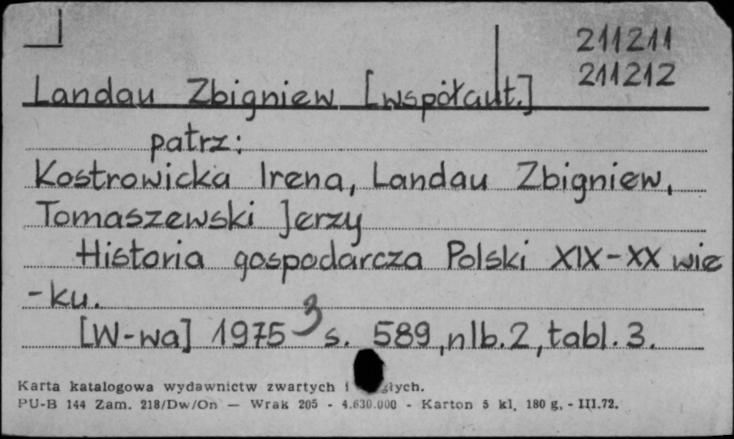 211211
211212
Landau Zbigniew [współaut.]
patrz:
Kostrowicka Irena, Landau Zbigniew,
Tomaszewski Jerzy
Historia gospodarcza Polski XIX-XX wie
-ku.
[W-wa] 1975 3 s. 589, nlb. 2, tabl. 3.
Karta katalogowa wydawnictw zwartych i
PU-B 144 Zam. 218/Dw/On — Wrak 205 - 4.630.000 - Karton 5 kl. 180 g. - III.72.